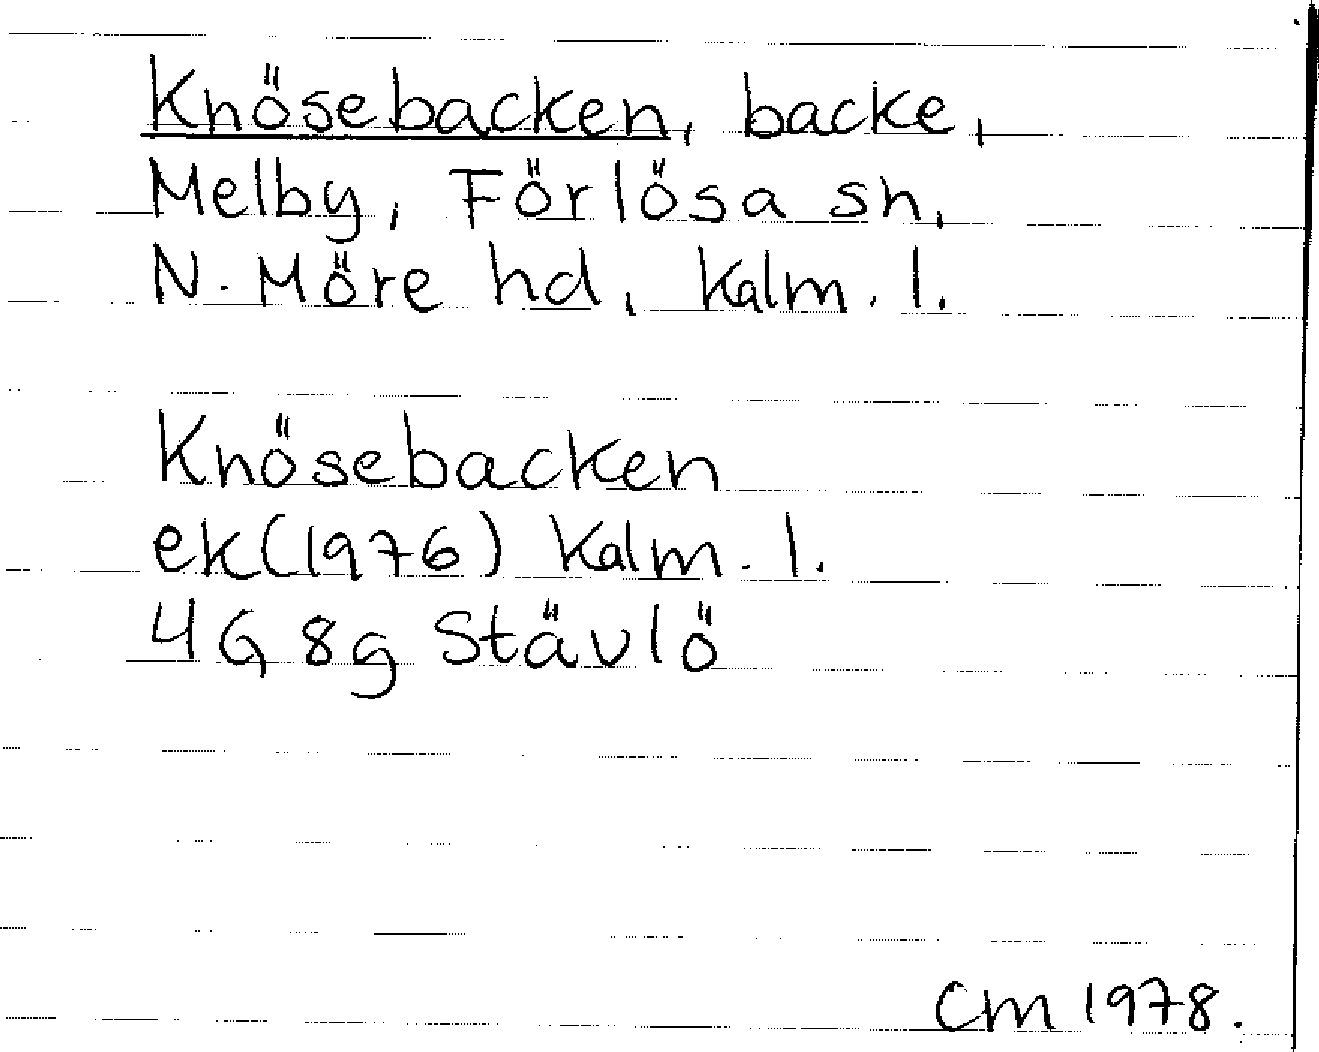 Knösebacken, backe,
Melby, Förlösa sn,
N. Möre hd, Kalm. l.
Knösebacken
ek(1976) Kalm. l.
4G 8g Stävlö
CM 1978.